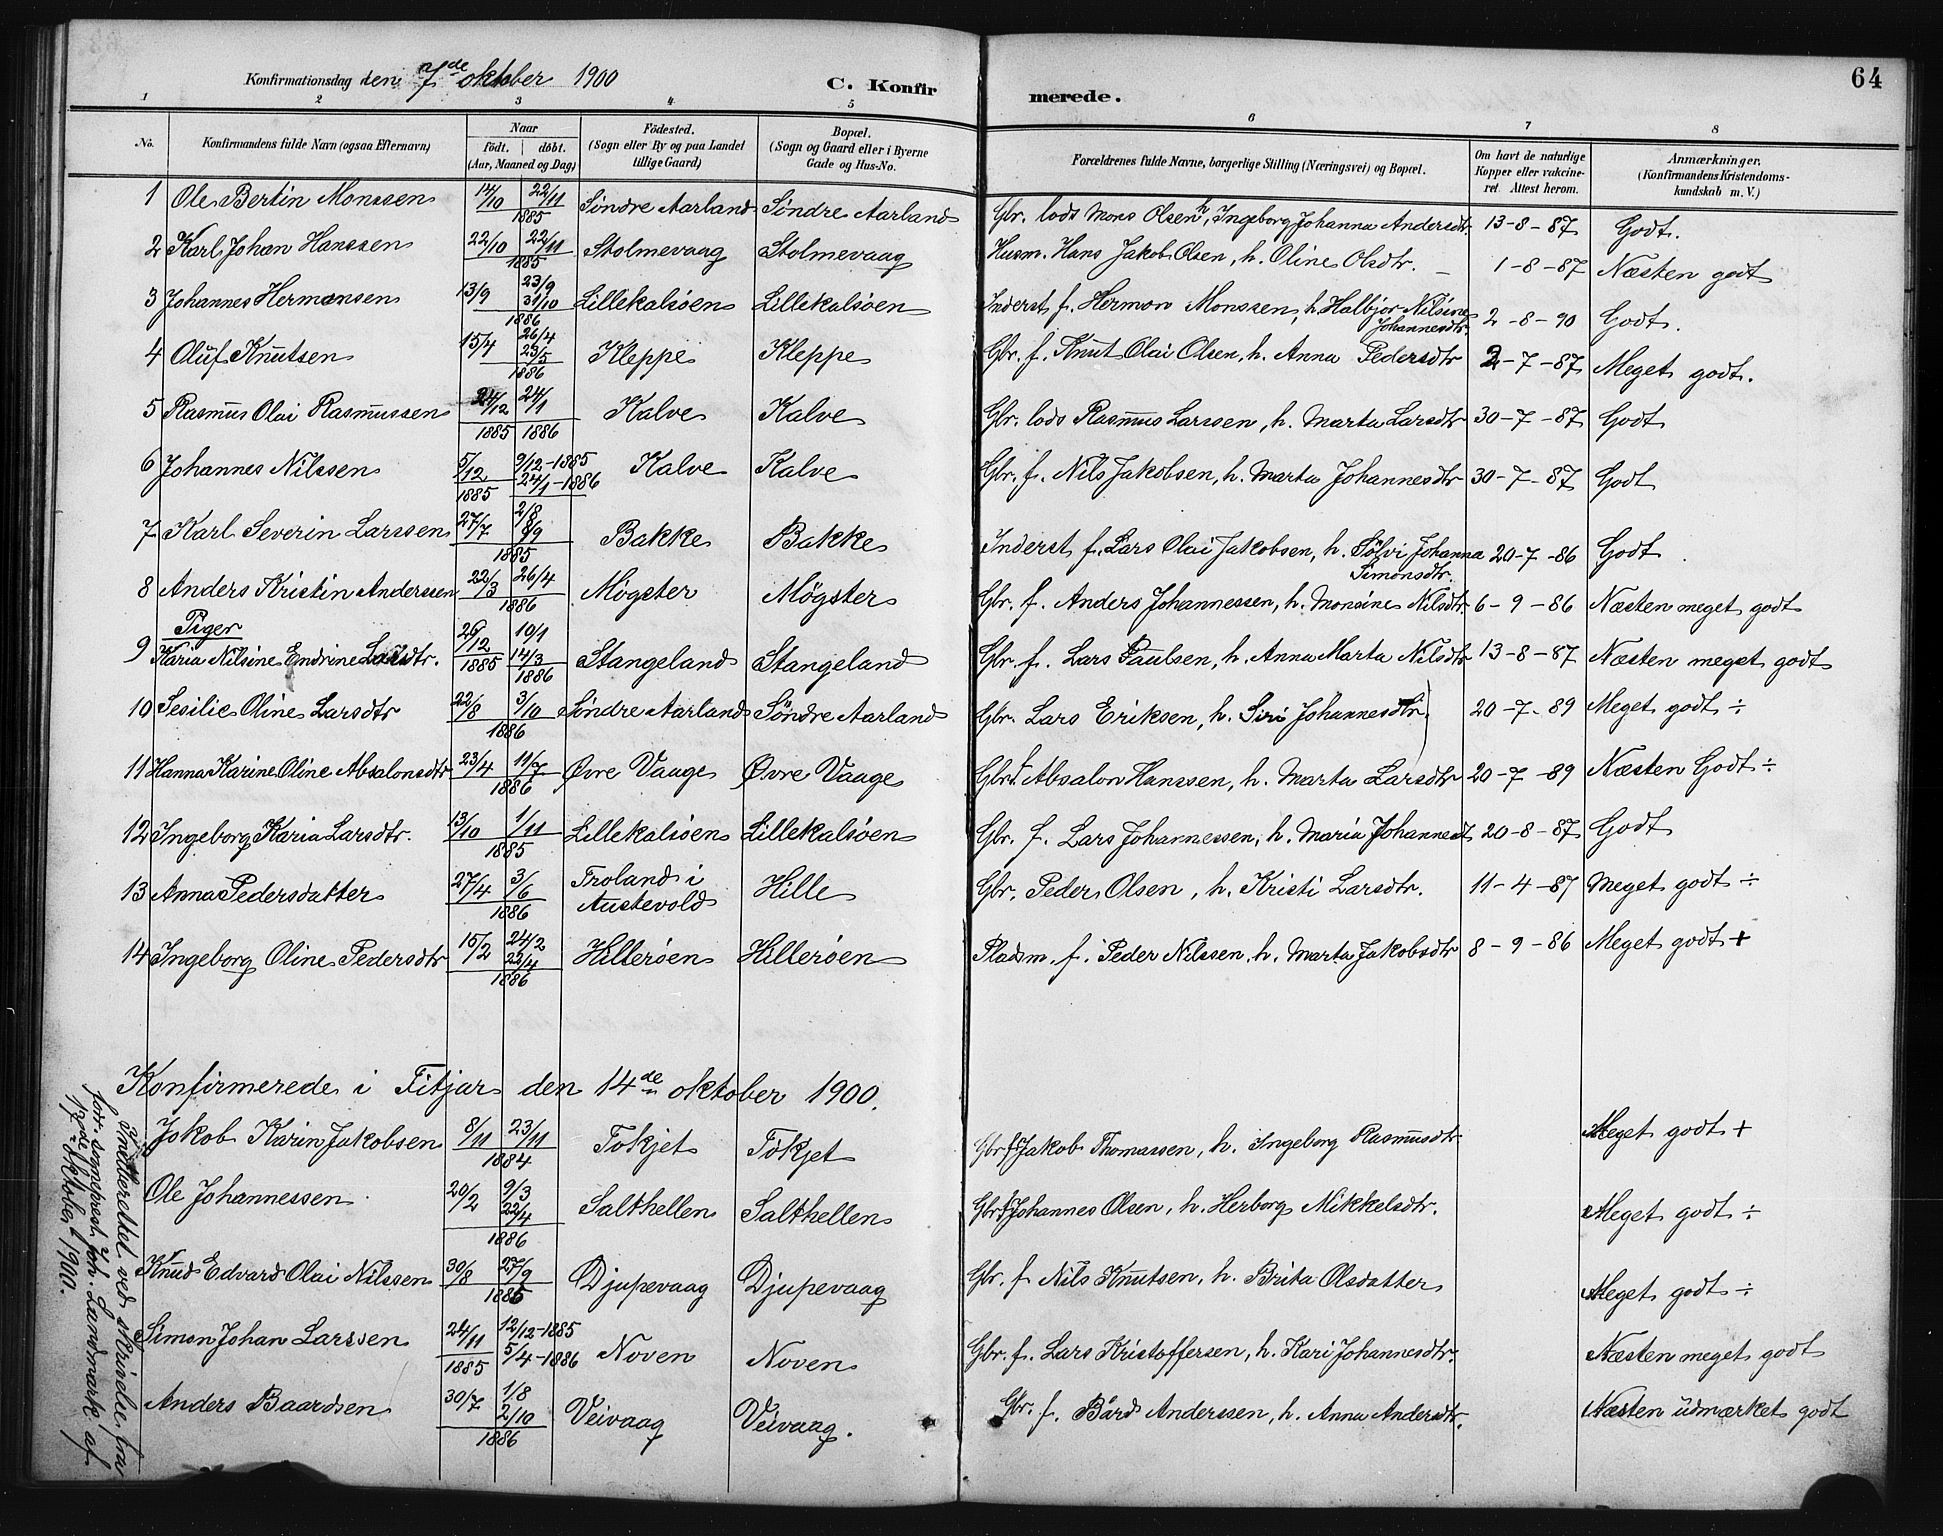 64
Konfirmationsdag den 7de oktober 1900 C. Konfirmerede.
1 2 3 4 5 6 7 8
No. Konfirmandens fulde Navn (ogsaa Efternavn) Naar født. døbt. (Aar, Maaned og Dag) Fødested. (Sogn eller By og paa Landet tillige Gaard) Bopæl. (Sogn og Gaard eller i Byerne Gade og Hus-No. Forældrenes fulde Navne, borgerlige Stilling (Næringsvei) og Bopæl. Om havt de naturlige Kopper eller vakcineret. Attest herom. Anmærkninger. (Konfirmandens Kristendomskundskab m. V.)
1 Ole Bertin Monssen 14/10 22/11 1885 Söndre Aarland Söndre Aarland Gbr. lods Mons Olsen, h. Ingeborg Johanna Andersdtr. 13-8-87 Godt.
2 Karl Johan Hanssen 22/10 22/11 1885 Stolmevaag Stolmevaag Husm. Hans Jakob Olsen, h. Oline Olsdtr. 1-8-87 Næsten godt
3 Johannes Hermansen 13/9 23/9 31/10 1886 Lillekalsöen Lillekalsöen Inderst f. Herman Monssen, h. Halbjor Nilsine Johannesdtr 2-8-90 Godt.
4 Oluf Knutsen 15/4 26/4 23/5 1886 Kleppe Kleppe Gbr. f. Knut Olai Olsen, h. Anna Pedersdtr 2-7-87 Meget godt.
5 Rasmus Olai Rasmussen 24/12 24/1 1885 1886 Kalve Kalve Gbr. lods Rasmus Larssen, h. Marta Larsdtr 30-7-87 Godt
6 Johannes Nilssen 5/12 1885 9/12-1885 24/1-1886 Kalve Kalve Gbr. f. Nils Jakobsen, h. Marta Johannesdtr 30-7-87 Godt
7 Karl Severin Larssen 27/7 2/8 8/9 1885 Bakke Bakke Inderst f. Lars Olai Jakobsen, h. Sölvi Johanna Simonsdtr. 20-7-86 Godt
8 Anders Kristin Anderssen 22/3 26/4 1886 Mögster Mögster Gbr. f. Anders Johannessen, h. Monsine Nilsdtr 6-9-86 Næsten meget godt
Piger
9 Karia Nilsine Endrine Larsdtr. 26/12 1885 10/1 14/3 1886 Stangeland Stangeland Gbr. f. Lars Paulsen, h. Anna Marta Nilsdtr 13-8-87 Næsten meget godt
10 Sesilie Oline Larsdtr 22/8 3/10 1886 Söndre Aarland Söndre Aarland Gbr. Lars Eriksen, h. Siri Johannesdtr. 20-7-89 Meget godt ÷
11 Hanna Karine Oline Absalonsdtr 23/4 11/7 1886 Øvre Vaage Øvre Vaage Gbr f. Absalon Hanssen, h. Marta Larsdtr 20-7-89 Næsten Godt ÷
12 Ingeborg Karia Larsdtr. 13/10 1/11 1885 Lillekalsöen Lillekalsöen Gbr. f. Lars Johannessen, h. Maria Johannesdt 20-8-87 Godt
13 Anna Pedersdatter 27/4 3/6 1886 Troland i Austevold Hille Gbr. Peder Olsen, h. Kristi Larsdtr. 11-4-87 Meget godt ÷
14 Ingeborg Oline Pedersdtr 15/2 24/2 23/4 1886 Hilleröen Hilleröen Pladsm. f. Peder Nilssen, h. Marta Jakobsdtr 8-9-86 Meget godt +
Konfirmerede i Fitjar den 14de oktober 1900.
Jakob Karin Jakobsen 8/11 23/11 1884 Tökjet Tökjet Gbr f Jakob Thomassen, h. Ingeborg Rasmusdtr. Meget godt +
Ole Johannessen 20/2 9/3 22/4 1886 Salthellen Salthellen Gbr f Johannes Olsen, h. Herborg Mikkelsdtr. Meget godt ÷
Knud Edvard Olai Nilssen 30/8 27/9 1885 Djupevaag Djupevaag Gbr. f Nils Knutsen, h. Brita Olsdatter Meget godt ÷
Simon Johan Larssen 24/11 1885 12/12-1885 5/4-1886 Noven Noven Gbr. f. Lars Kristoffersen, h. Kari Johannesdtr. Næsten meget godt
Anders Baardsen 30/7 1/8 2/10 1886 Veivaag Veivaag. Gbr. f. Bård Anderssen, h. Anna Andersdtr. Næsten üdmærket godt
Underrettet ved skrivelse fra
for. sognepræst Joh. Landmark af
17. oktober 1900.